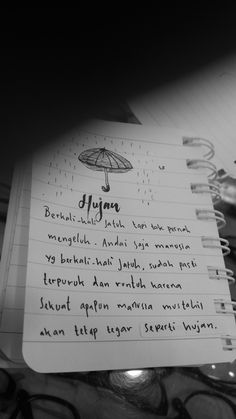 Hujan
Berkali-kali jatuh tapi tak pernah
mengeluh. Andai saja manusia
yg berkali-kali jatuh, sudah pasti
terpuruk dan rontoh karena
sekuat apapun manusia mustahil
akan tetap tegar seperti hujan.